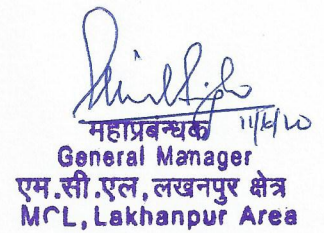 11/6/20
महाप्रबन्धक
General Manager
एम.सी.एल, लखनपुर क्षेत्र
MCL, Lakhanpur Area